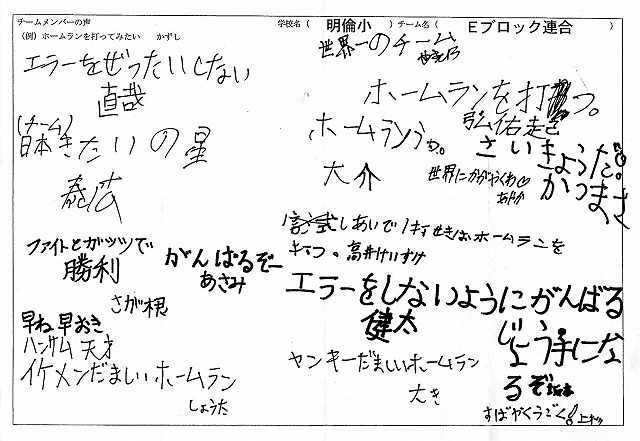 チームメンバーの声
(例)ホームランを打ってみたい かずし
学校名( 明倫小 )チーム名( Eブロック連合 )
エラーをぜったいしない
直哉
(チーム)
日本きたいの星
ファイトとガッツで
勝利
さが根
がんばるぞー
あさみ
早ね早おき
ハンサム 天才
イケメンだましいホームラン
しょうた
世界一のチーム
ホームランを打つ。
ホームランうつ。
大介
さいきょうだ。
かつまさ
世界にかがやくわ
しあいで1打せきはホームランを
高井けいすけ
エラーをしないようにがんばる
健太
じょう手にな
るぞ
ヤンキーだましいホームラン
大き
すばやくうごく!